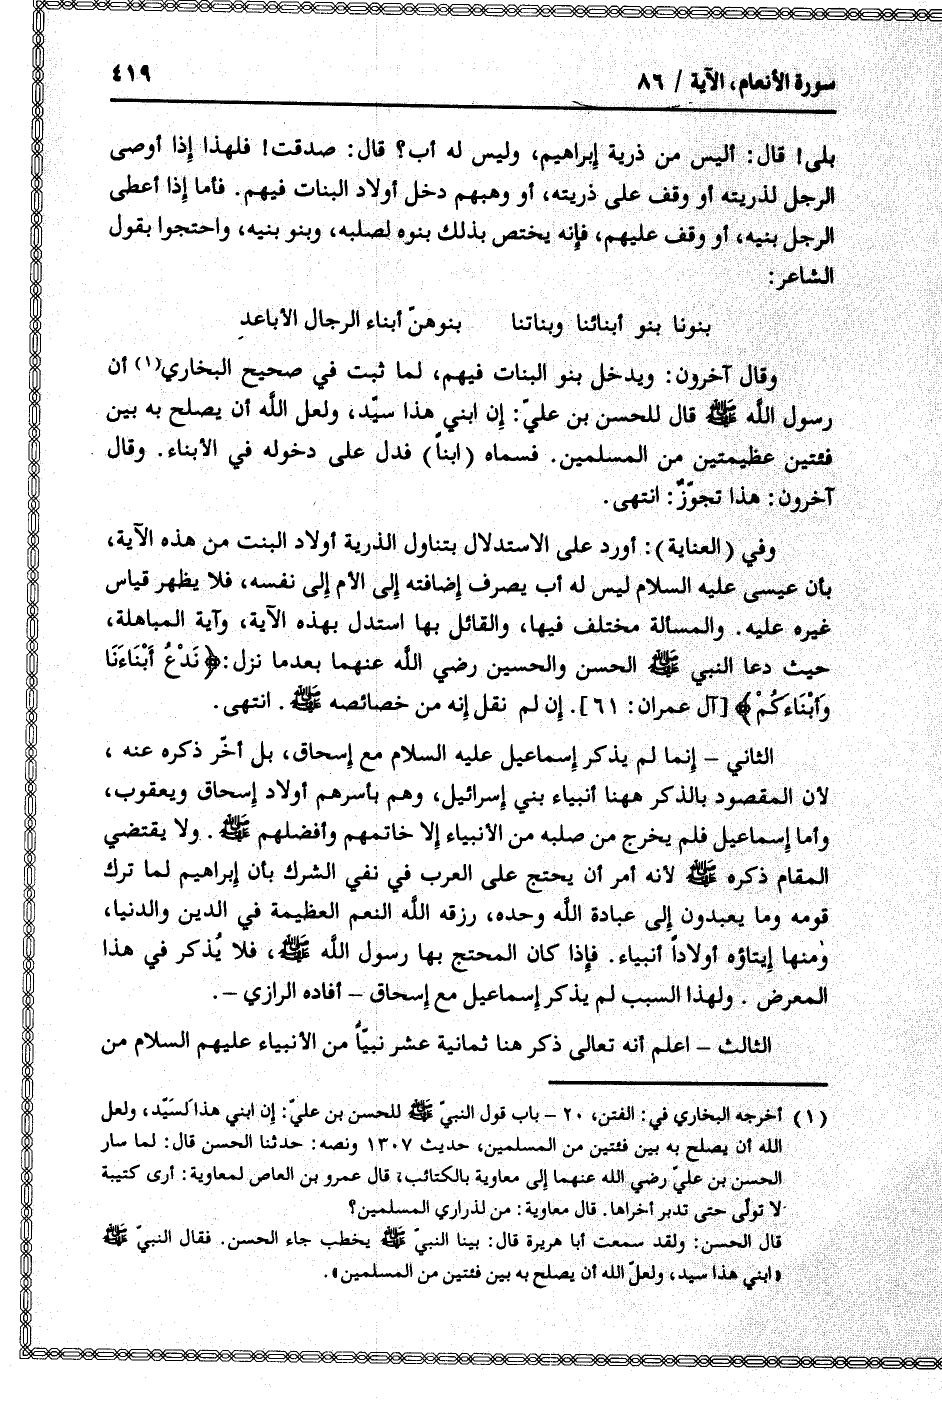 سورة الأنعام، الآية / ٨٦
٤١٩
بلى! قال: أليس من ذرية إبراهيم، وليس له أب؟ قال: صدقت! فلهذا إذا أوصى
الرجل لذريته أو وقف على ذريته، أو وهبهم دخل أولاد البنات فيهم. فأما إذا أعطى
الرجل بنيه، أو وقف عليهم، فإنه يختص بذلك بنوه لصلبه، وبنو بنيه، واحتجوا بقول
الشاعر:
بنونا بنو أبنائنا وبناتنا بنوهنّ أبناء الرجال الأباعد
وقال آخرون: ويدخل بنو البنات فيهم، لما ثبت في صحيح البخاري(١) أن
رسول الله ﷺ قال للحسن بن عليّ: إن ابني هذا سيّد، ولعل الله أن يصلح به بين
فئتين عظيمتين من المسلمين. فسماه (ابناً) فدل على دخوله في الأبناء. وقال
آخرون: هذا تجوّزٌ: انتهى.
وفي (العناية): أورد على الاستدلال بتناول الذرية أولاد البنت من هذه الآية،
بأن عيسى عليه السلام ليس له أب يصرف إضافته إلى الأم إلى نفسه، فلا يظهر قياس
غيره عليه. والمسالة مختلف فيها، والقائل بها استدل بهذه الآية، وآية المباهلة،
حيث دعا النبي ﷺ الحسن والحسين رضي الله عنهما بعدما نزل: ﴿نَدْعُ أَبْنَاءَنَا
وَأَبْنَاءَكُمْ﴾ [آل عمران: ٦١]. إن لم نقل إنه من خصائصه ﷺ. انتهى.
الثاني – إنما لم يذكر إسماعيل عليه السلام مع إسحاق، بل أخّر ذكره عنه ،
لأن المقصود بالذكر ههنا أنبياء بني إسرائيل، وهم بأسرهم أولاد إسحاق ويعقوب،
وأما إسماعيل فلم يخرج من صلبه من الأنبياء إلا خاتمهم وأفضلهم ﷺ. ولا يقتضي
المقام ذكره ﷺ لأنه أمر أن يحتج على العرب في نفي الشرك بأن إبراهيم لما ترك
قومه وما يعبدون إلى عبادة الله وحده، رزقه الله النعم العظيمة في الدين والدنيا،
ومنها إيتاؤه أولاداً أنبياء. فإذا كان المحتج بها رسول الله ﷺ، فلا يُذكر في هذا
المعرض . ولهذا السبب لم يذكر إسماعيل مع إسحاق – أفاده الرازي –.
الثالث – اعلم أنه تعالى ذكر هنا ثمانية عشر نبيّاً من الأنبياء عليهم السلام من
(١) أخرجه البخاري في: الفتن، ٢٠ – باب قول النبيّ ﷺ للحسن بن عليّ: إن ابني هذا لَسَيّد، ولعل
الله أن يصلح به بين فئتين من المسلمين، حديث ١٣٠٧ ونصه: حدثنا الحسن قال: لما سار
الحسن بن عليّ رضي الله عنهما إلى معاوية بالكتائب، قال عمرو بن العاص لمعاوية: أرى كتيبة
لا تولّى حتى تدبر أخراها. قال معاوية: من لذراري المسلمين؟
قال الحسن: ولقد سمعت أبا هريرة قال: بينا النبيّ ﷺ يخطب جاء الحسن. فقال النبيّ ﷺ
«ابني هذا سيد، ولعلّ الله أن يصلح به بين فئتين من المسلمين».